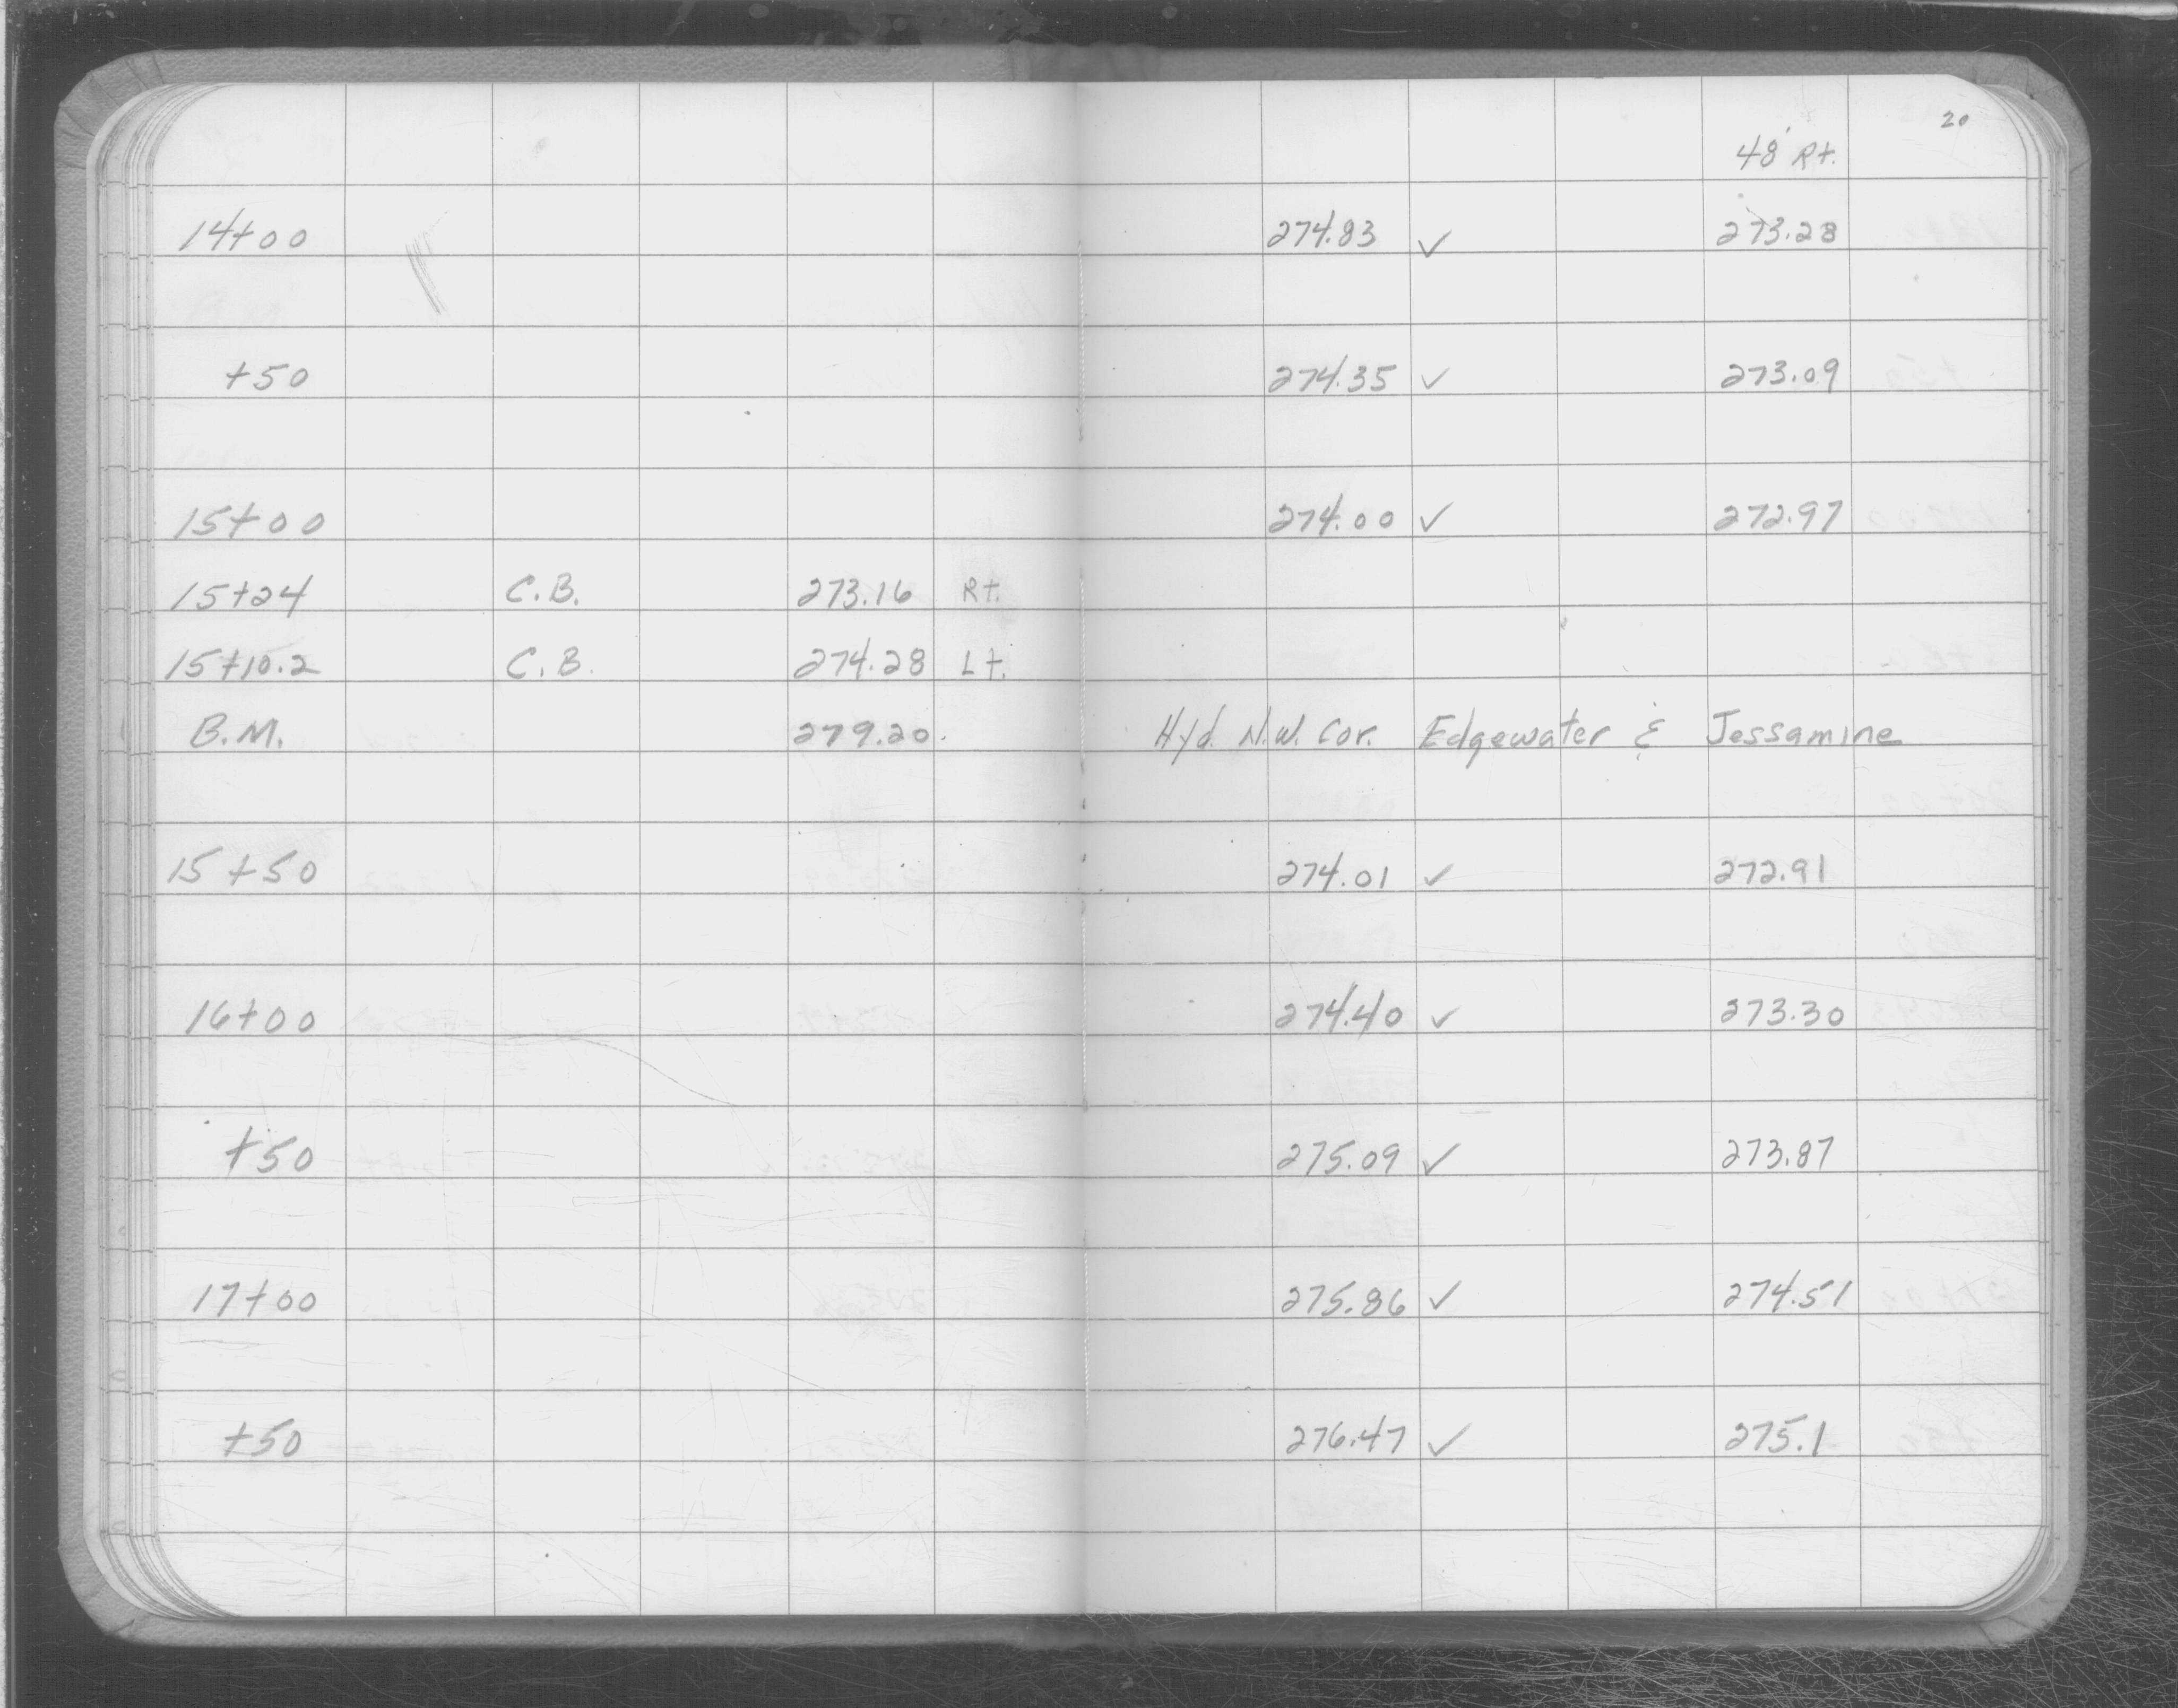 20
48' Rt.
14+00 274.83 ✓ 273.28
+50 274.35 ✓ 273.09
15+00 274.00 ✓ 272.97
15+24 C.B. 273.16 Rt.
15+10.2 C.B. 274.28 Lt.
B.M. 279.20. Hyd. N.W. Cor. Edgewater & Jessamine
15+50 274.01 ✓ 272.91
16+00 274.40 ✓ 273.30
+50 275.09 ✓ 273.87
17+00 275.86 ✓ 274.51
+50 276.47 ✓ 275.1